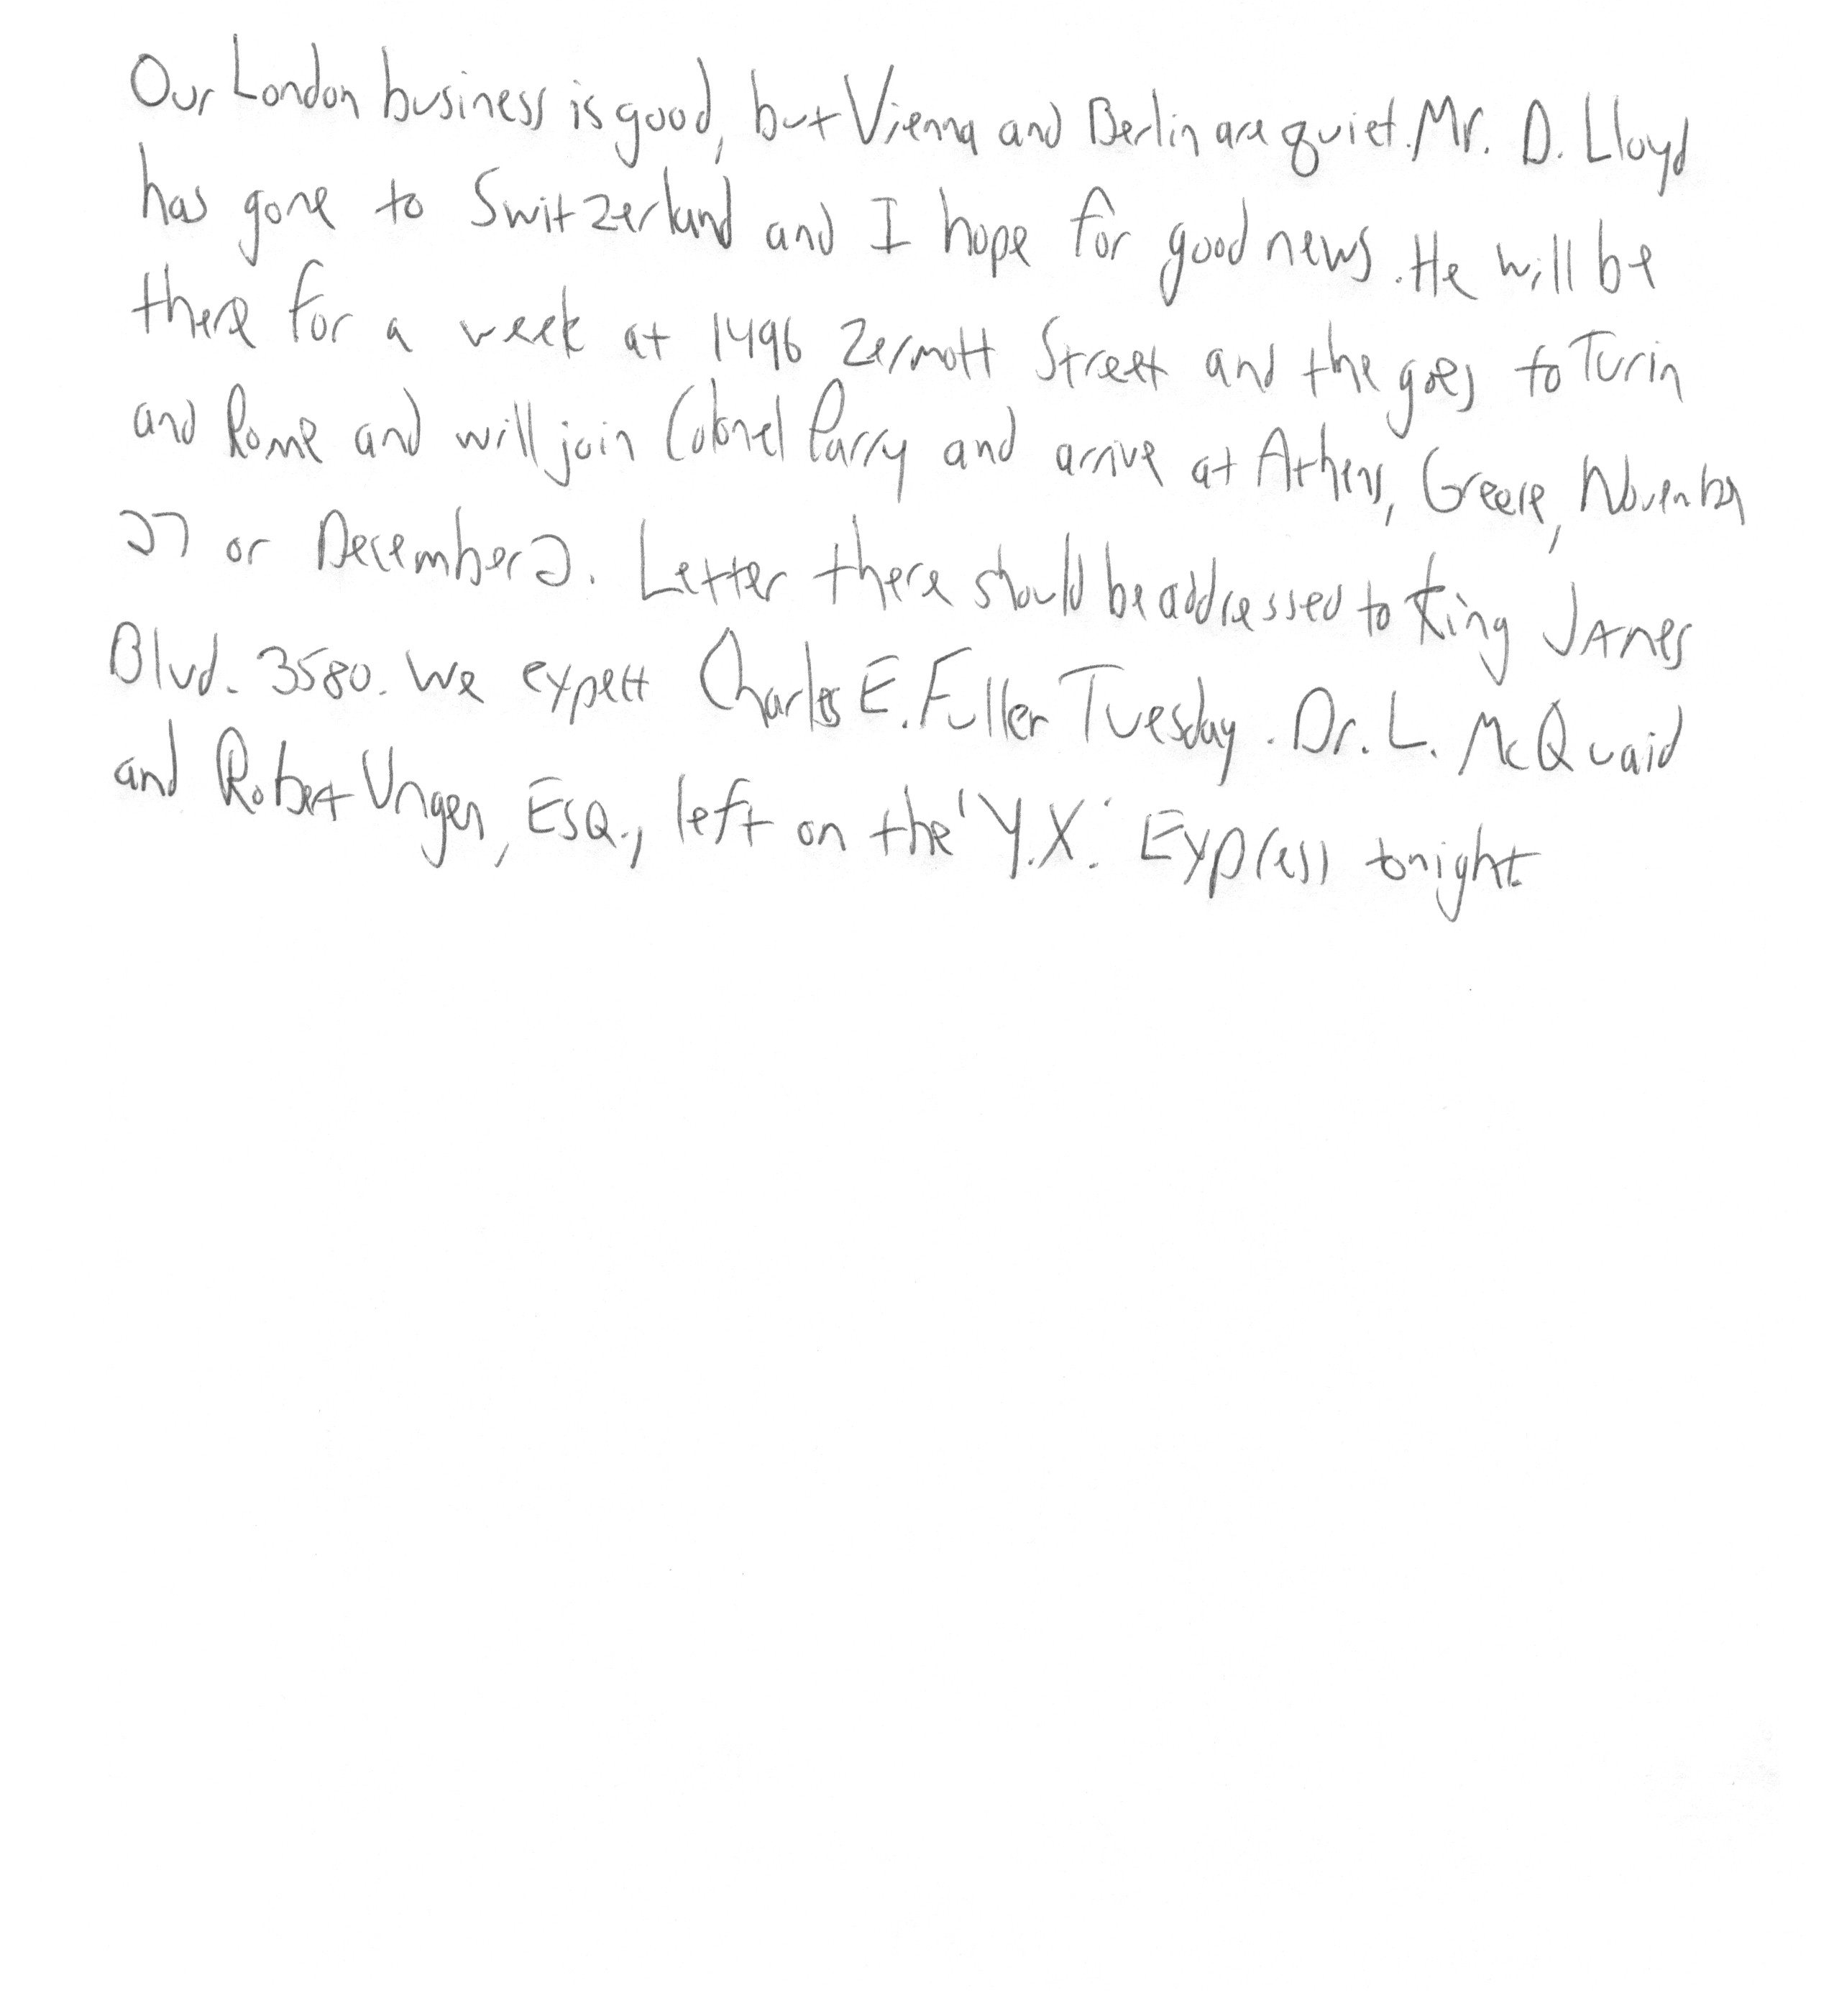 Our London business is good, but Vienna and Berlin are quiet. Mr. D. Lloyd
has gone to Switzerland and I hope for good news. He will be
there for a week at 1496 Zermott Street and the goes to Turin
and Rome and will join Colonel Parry and arrive at Athens, Greece, November
27 or December 2. Letter there should be addressed to King James
Blvd. 3580. We expect Charles E. Fuller Tuesday. Dr. L. McQuaid
and Robert Unger, Esq., left on the "Y.X." Express tonight